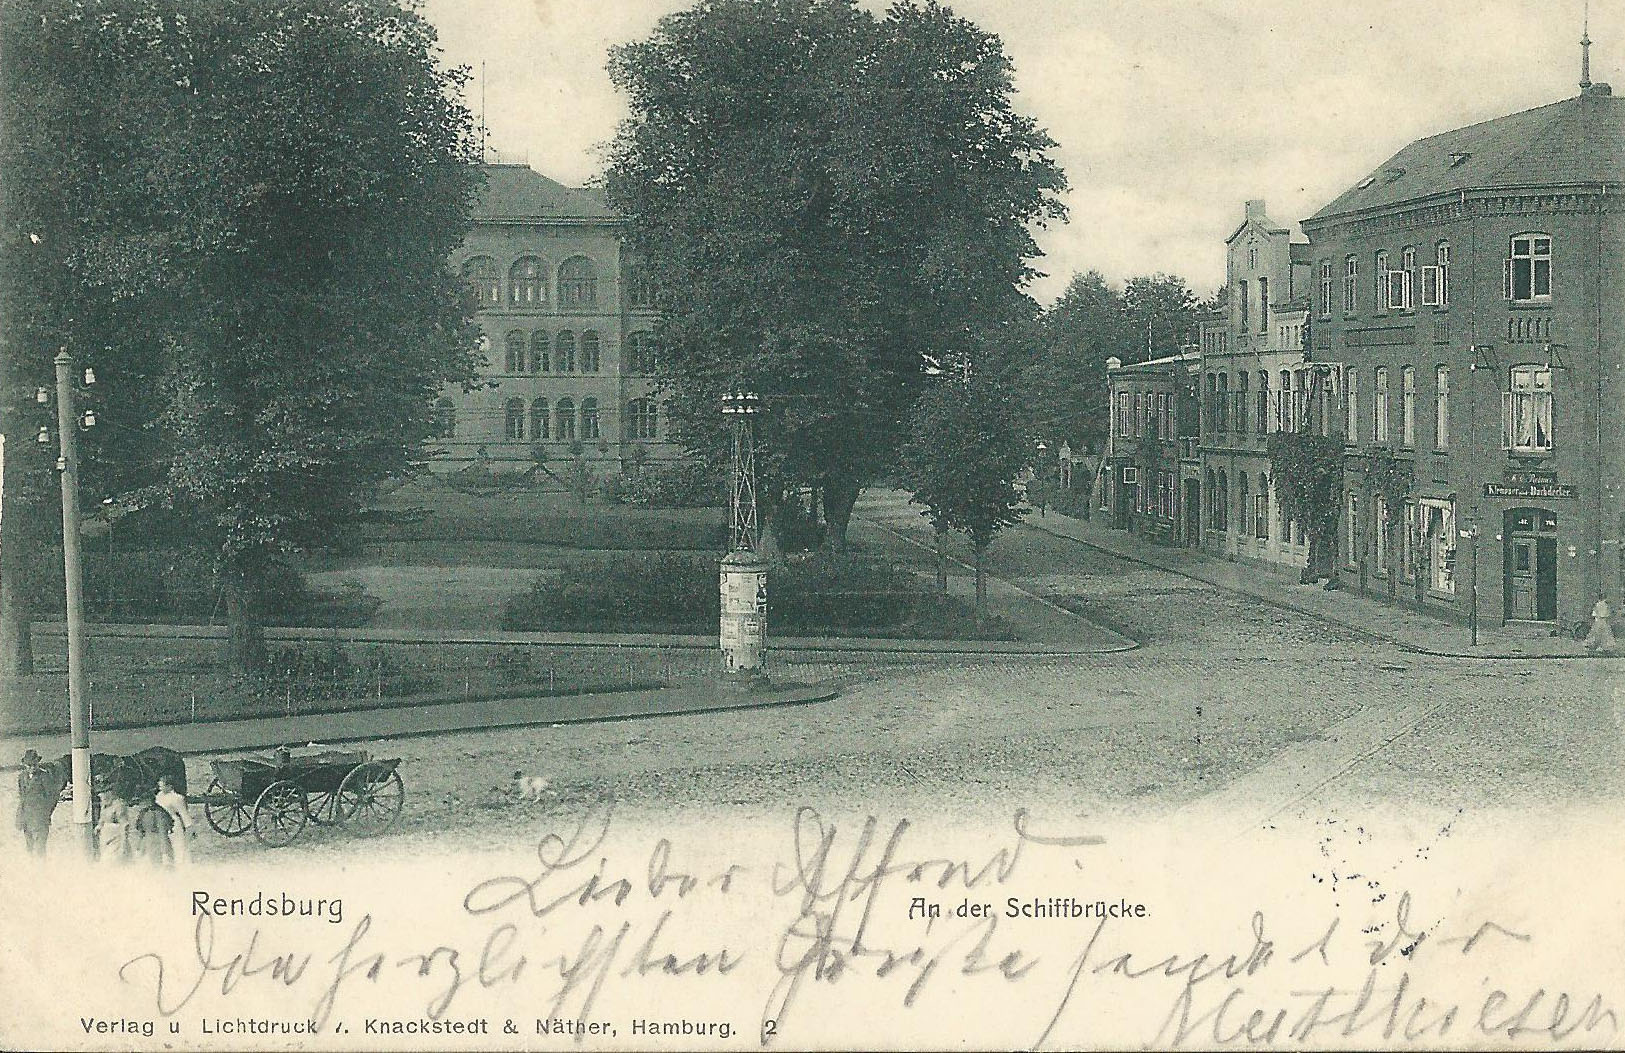 Klempner und Dachdecker.
Lieber Alfred
Rendsburg
An der Schiffbrücke.
Die herzlichsten Grüße sendet dir
Verlag u Lichtdruck v. Knackstedt & Näther, Hamburg. 2